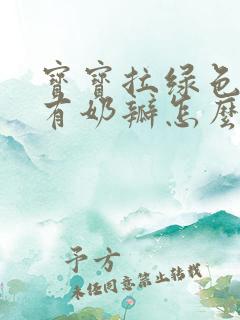 宝宝拉绿色
有奶瓣怎么
予方
未经同意禁止转载